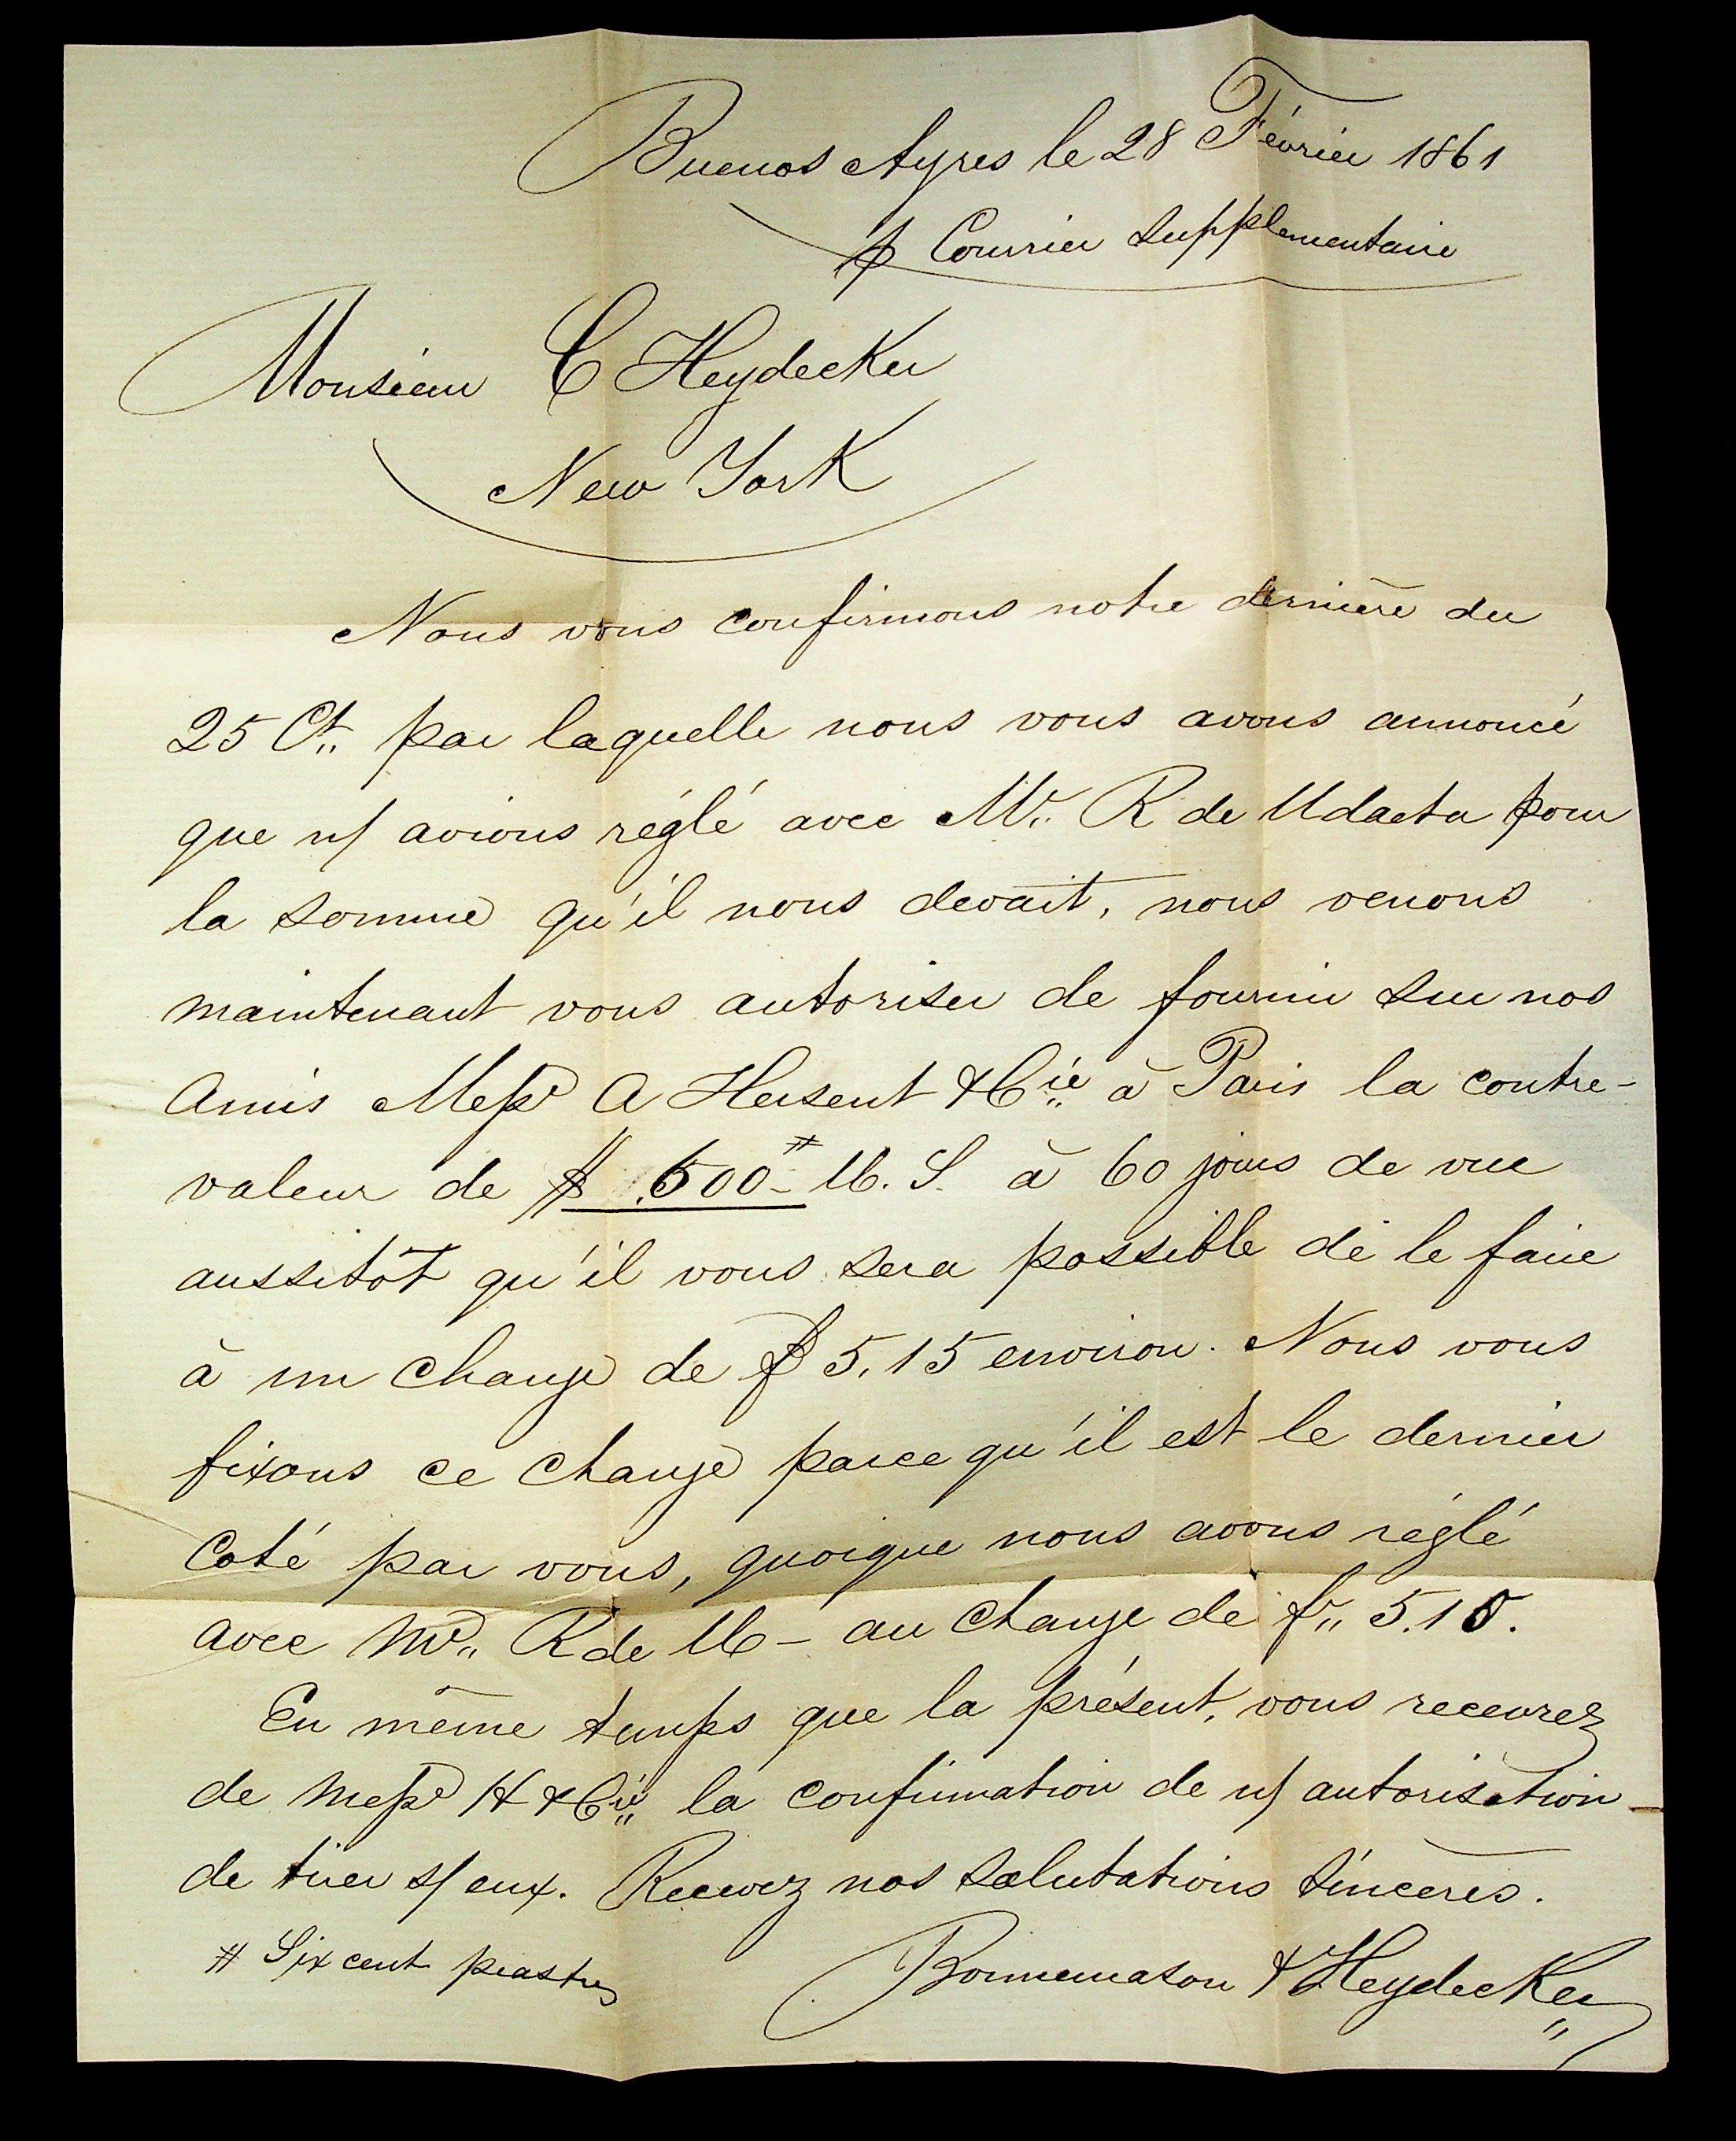 Buenos Ayres le 28 Février 1861
p Courrier supplementaire
Monsieur C Heydecker
New York
Nous vous confirmons notre dernière du
25 Ct. par laquelle nous vous avons annoncé
que n/ avions réglé avec Mr. R de Udaeta pour
la somme qu'il nous devait, nous venons
maintenant vous autoriser de fournir sur nos
Amis Messrs A Hersent & Cie à Paris la contre-
valeur de $ 600 # U. S. à 60 jours de vue
aussitôt qu'il vous sera possible de le faire
à un change de f 5.15 environ. Nous vous
fixons ce change parce qu'il est le dernier
Coté par vous, quoique nous avons réglé
avec Mr. R de U - au change de fr. 5.10.
En même temps que la présent, vous recevrez
de Messrs H & Cie la confirmation de n/ autorisation
de tirer s/ eux. Recevez nos salutations sincères.
# Six cent piastres
Bonnemason & Heydecker